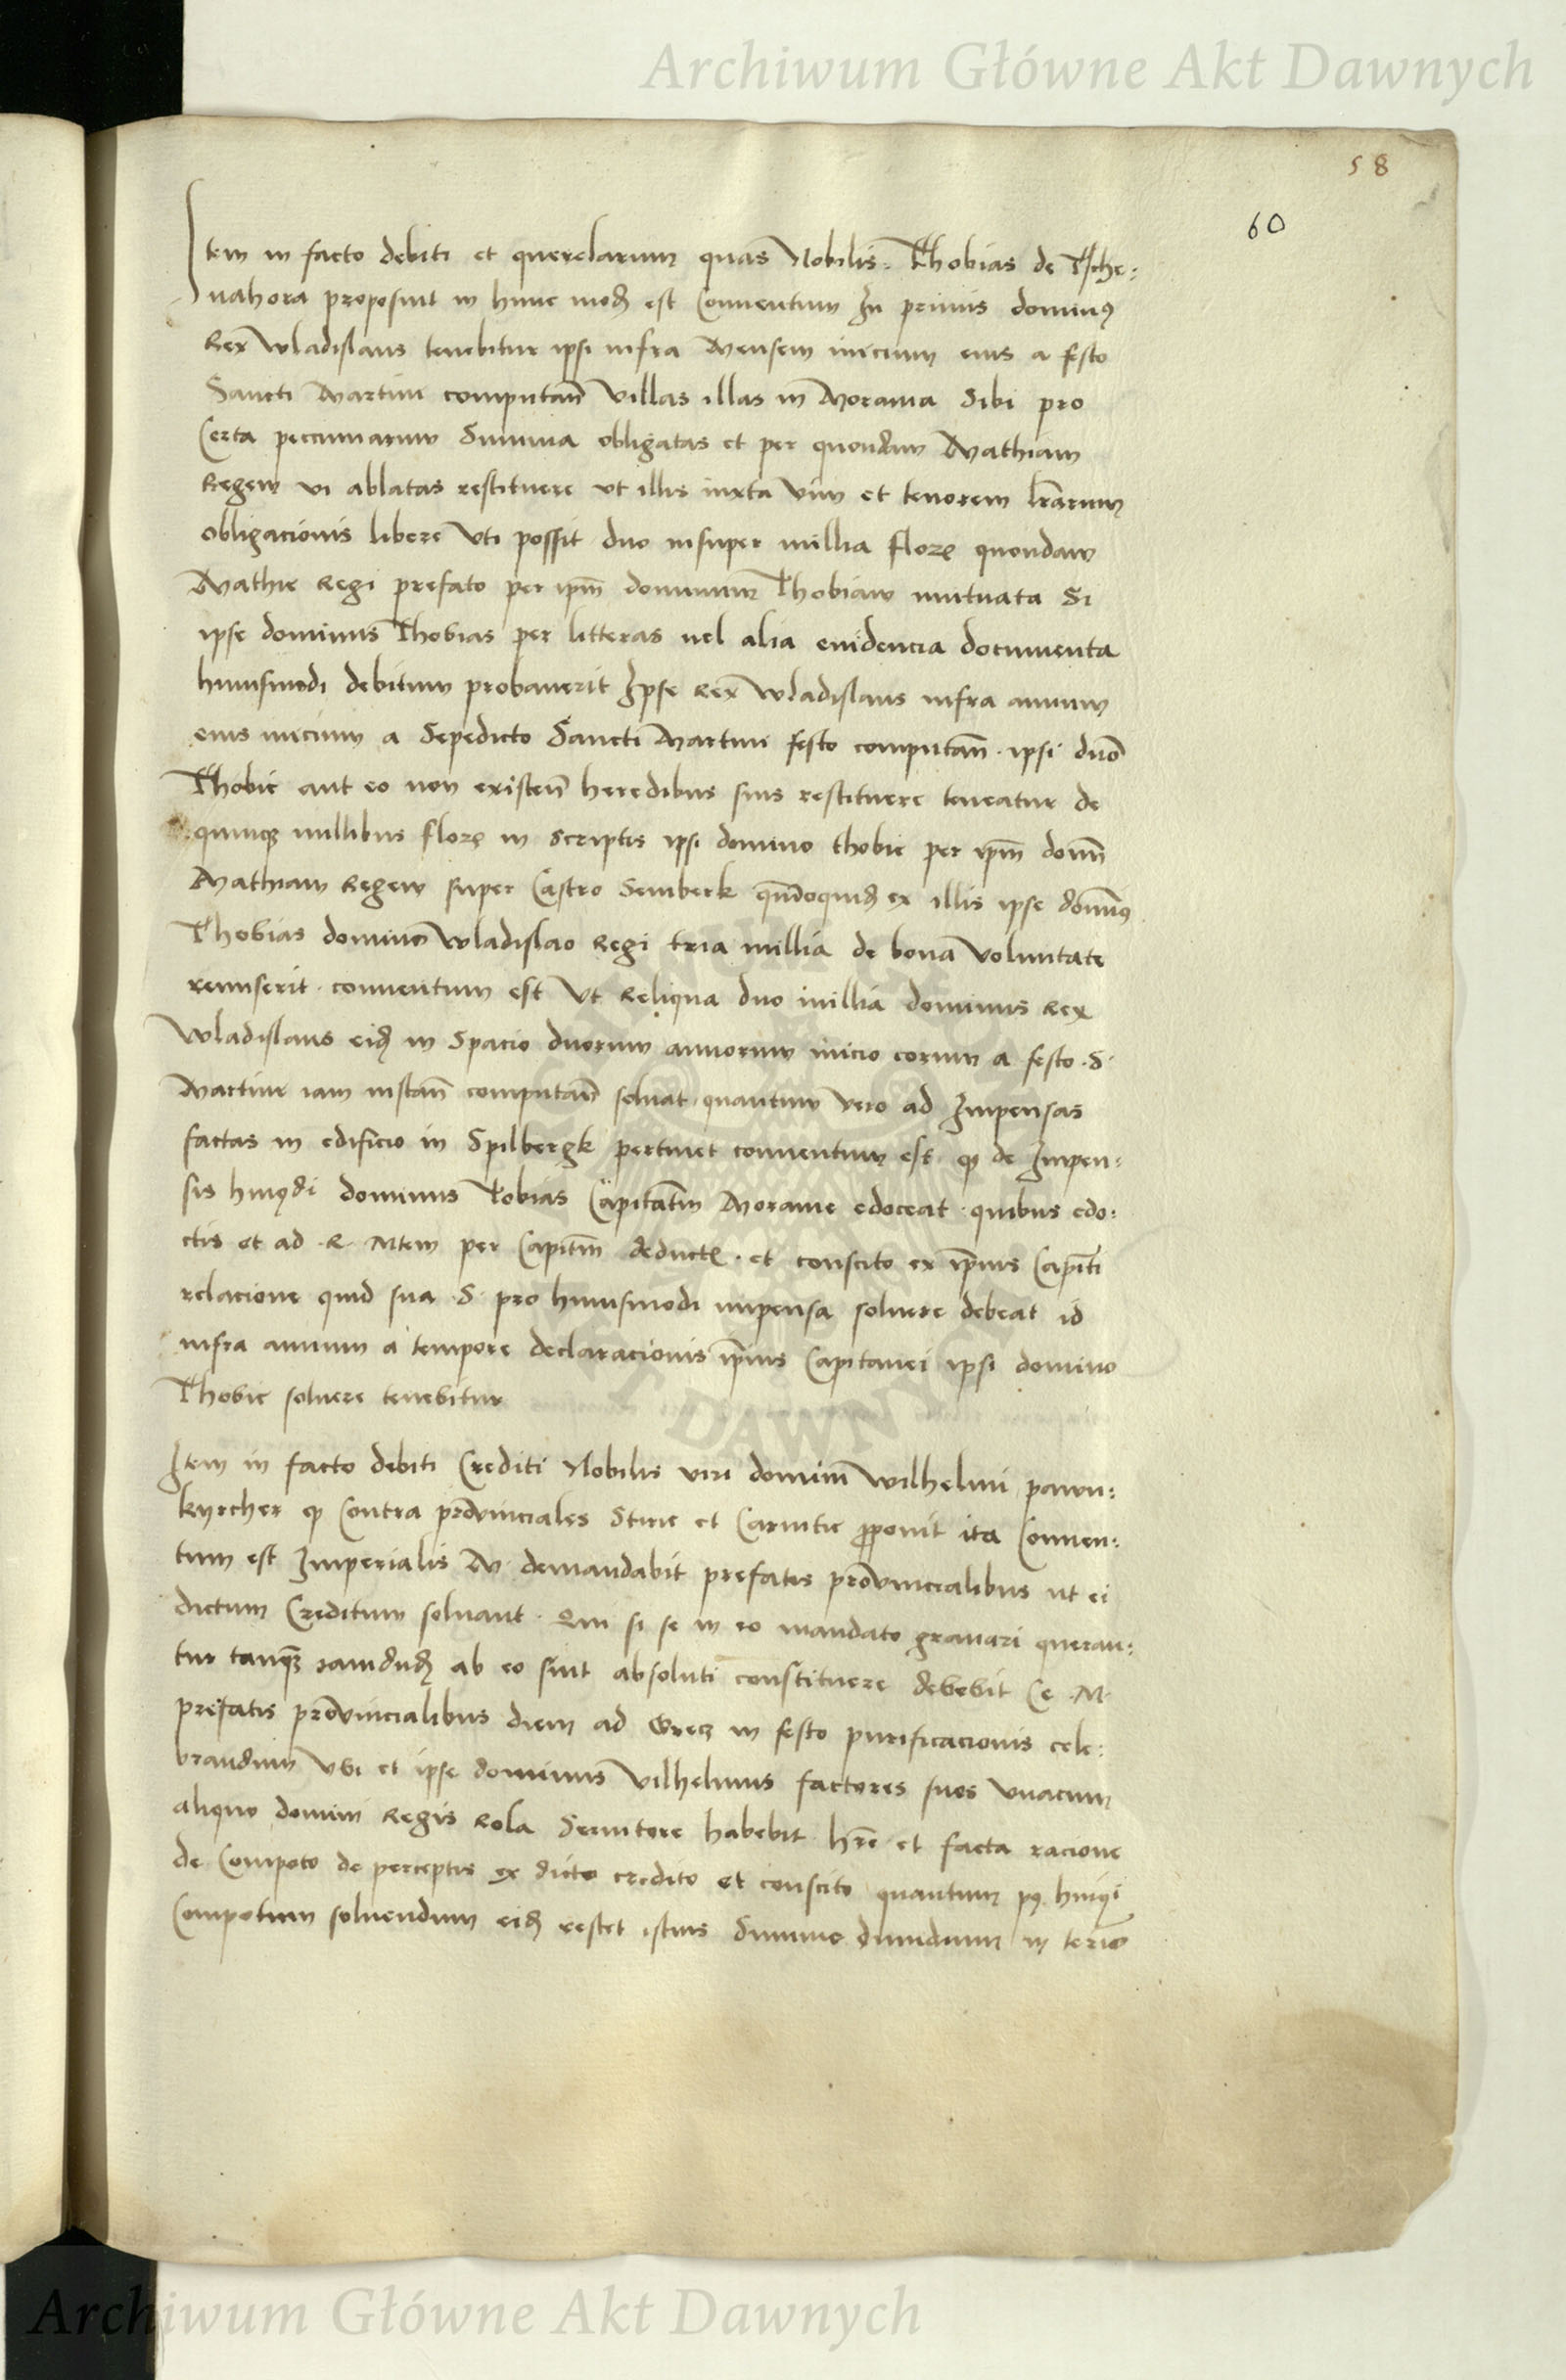 Archiwum Główne Akt Dawnych
58
60
Item in facto debiti et querelarum quas Nobilis Thobias de Tsche:
nahora proposuit in hunc mod est Conventum In primis dominus
Rex Wladislaus tenebitur ipsi infra Mensem inicium eius a festo
Sancti Martini computan Villas illas in Moravia Sibi pro
Certa pecuniarum Summa obligatas et per quondam Mathiam
Regem vi ablatas restituere ut illis iuxta vim et tenorem lrarum
obligacionis libere Uti possit duo insuper millia flore quondam
Mathie Regi prefato per ipm dominum Thobiam mutuata Si
ipse dominus Thobias per litteras vel alia evidencia documenta
huiusmodi debitum probaverit Ipse Rex Wladislaus infra annum
eius inicium a Sepedicto Sancti Martini festo computan. ipsi dno
Thobie aut eo non existen heredibus suis restituere teneatur de
quinque millibus flore in scriptis ipsi domino thobie per ipm domn
Mathiam Regem super Castro Semberk qndoquid ex illis ipse domnus
Thobias domino Wladislao Regi tria millia de bona Voluntate
remiserit. conventum est Ut Reliqua duo millia dominus Rex
Wladislaus eid in Spacio duorum annorum inicio eorum a festo .S.
Martini iam instan computan solvat. quantum vero ad Impensas
factas in edificio in Spilbergk pertinet conventum est. q de Impen:
sis huiusmodi dominus Tobias Capitanm Moravie edoceat. quibus edo:
ctis et ad .R. Mtem per Capitm deducte. et conscito ex ipius Capiti
relacione quid sua .S. pro huiusmodi impensa solvere debeat id
infra annum a tempore declaracionis ipius Capitanei ipsi domino
Thobie solvere tenebitur
Item in facto debiti Crediti Nobilis viri domini Wilhelmi pawn:
kyrcher q Contra provinciales Stirie et Carintie proponit ita Conven:
tum est Imperialis M. demandabit prefatis provincialibus ut ei
dictum Creditum solvant. Qui si se in eo mandato gravari queran:
tur tanquam iamdud ab eo sint absoluti constituere debebit Ce .M.
prefatis provincialibus diem ad Grecz in festo purificacionis cele:
brandum Ubi et ipse dominus Vilhelmus factores suos Unacum
aliquo domini Regis Rola Servitore habebit hre et facta racione
de Compoto de perceptis ex dicto credito et conscito quantum post huiusmodi
Compotum solvendum eid restet istius Summe dimidium in termio
Archiwum Główne Akt Dawnych